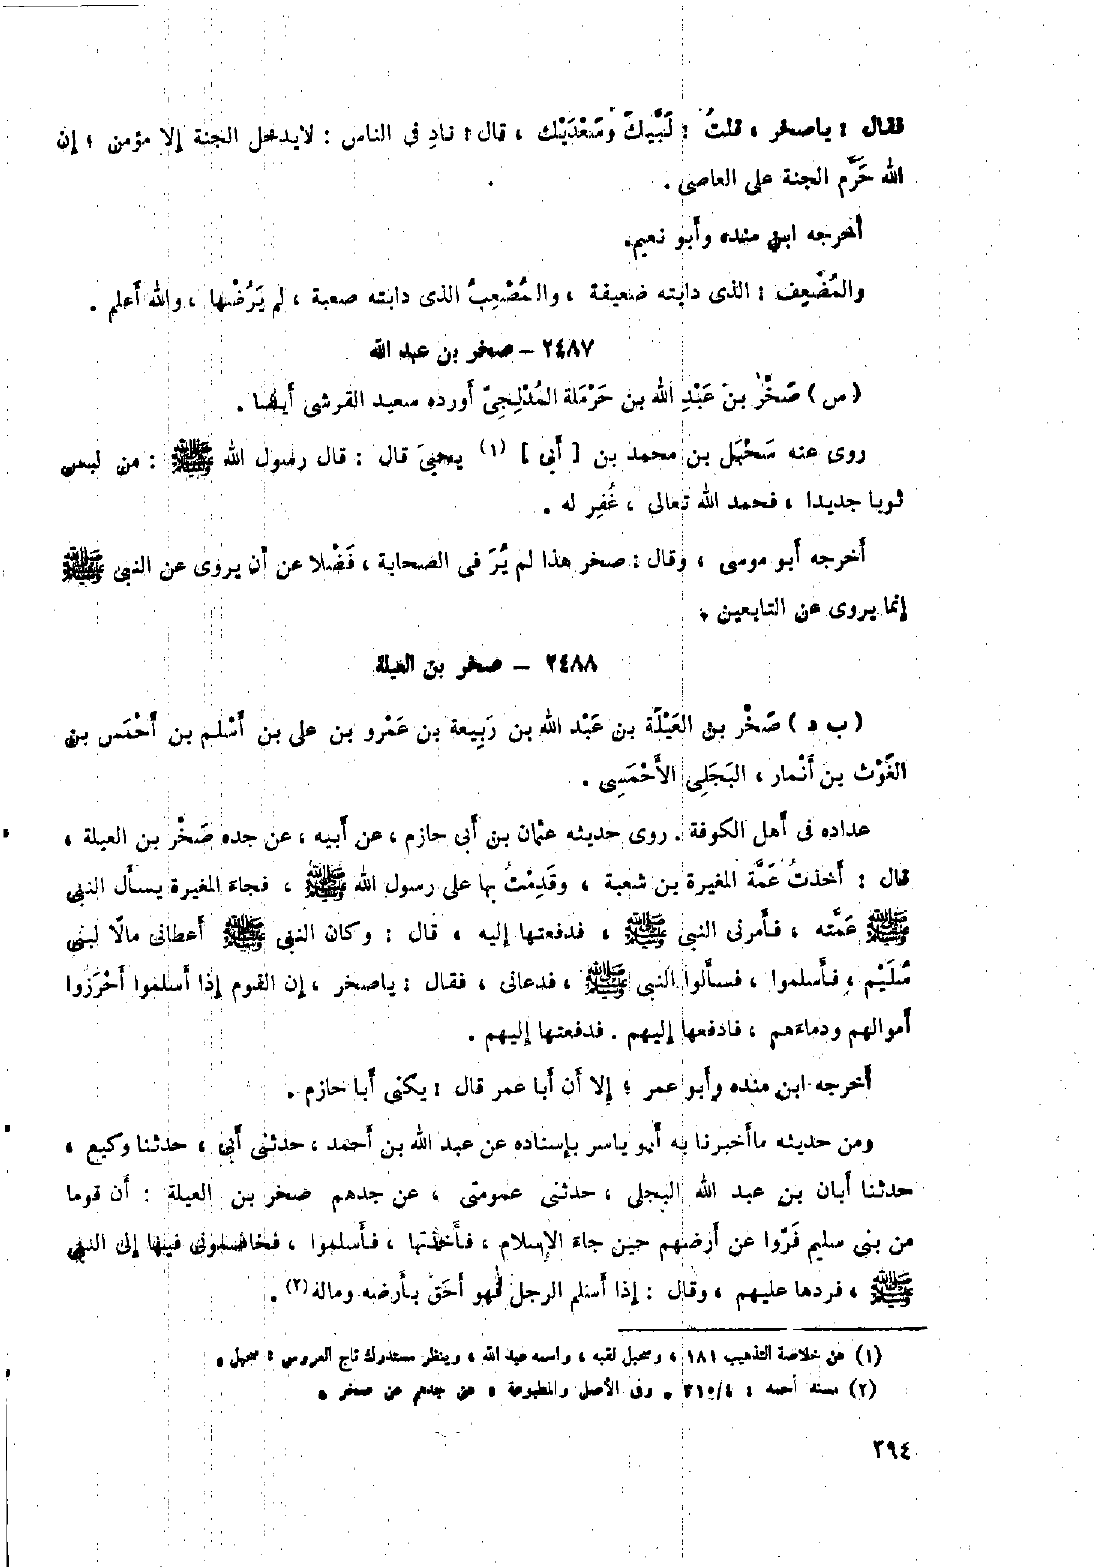 فقال : ياصخر ، قلتُ : لَبَّيكَ وسَعْدَيْك ، قال : نادِ فى الناس : لايدخل الجنة إلا مؤمن ؛ إن
الله حَرَّم الجنة على العاصى .
أخرجه ابن منده وأبو نعيم.
والمُضْعِف : الذى دابته ضعيفة ، والمُصْعِبُ الذى دابته صعبة ، لم يَرُضْها ، والله أعلم .
٢٤٨٧ – صخر بن عبد الله
( س ) صَخْرُ بن عَبْدِ الله بن حَرْمَلة المُدْلِجِىّ أورده سعيد القرشى أيضا .
روى عنه سَحْبَل بن محمد بن [ أبى ] (١) يحيىَ قال : قال رسول الله ﷺ : من لبس
ثوبا جديدا ، فحمد الله تعالى ، غُفِر له .
أخرجه أبو موسى ، وقال : صخر هذا لم يُرَ فى الصحابة ، فَضْلا عن أن يروى عن النبى ﷺ
إنما يروى عن التابعين .
٢٤٨٨ – صخر بن العيلة
( ب د ) صَخْر بن العَيْلَة بن عَبْد الله بن رَبِيعة بن عَمْرو بن على بن أَسْلم بن أَحْمَس بن
الغَوْث بن أَنْمار ، البَجَلِى الأَحْمَسِى .
عداده فى أهل الكوفة . روى حديثه عثمان بن أبى حازم ، عن أبيه ، عن جده صَخْر بن العيلة ،
قال : أخذتُ عَمَّة المغيرة بن شعبة ، وقَدِمْتُ بها على رسول الله ﷺ ، فجاءَ المغيرة يسأل النبى
ﷺ عَمَّته ، فأمرنى النبى ﷺ ، فدفعتها إليه ، قال : وكان النبى ﷺ أعطانى مالًا لبنى
سُلَيْم ، فأسلموا ، فسألوا النبى ﷺ ، فدعانى ، فقال : ياصخر ، إن القوم إذا أسلموا أحْرَزوا
أموالهم ودماءهم ، فادفعها إليهم . فدفعتها إليهم .
أخرجه ابن منده وأبو عمر ؛ إلا أن أبا عمر قال : يكنى أبا حازم .
ومن حديثه ماأخبرنا به أبو ياسر بإسناده عن عبد الله بن أحمد ، حدثنى أبى ، حدثنا وكيع ،
حدثنا أبان بن عبد الله البجلى ، حدثنى عمومتى ، عن جدهم صخر بن العيلة : أن قوما
من بنى سليم فَرّوا عن أرضهم حين جاءَ الإسلام ، فأخذتها ، فأسلموا ، فخاصمونى فيها إلى النبى
ﷺ ، فردها عليهم ، وقال : إذا أسلم الرجل فهو أحَقّ بأرضه وماله (٢) .
(١) عن خلاصة التذهيب ١٨١ ، وسحبل لقبه ، واسمه عبد الله ، وينظر مستدرك تاج العروس : سحبل .
(٢) مسند أحمد : ٤/ ٣١٠ . وفى الأصل والمطبوعة « عن جدهم عن صخر »
٣٩٤